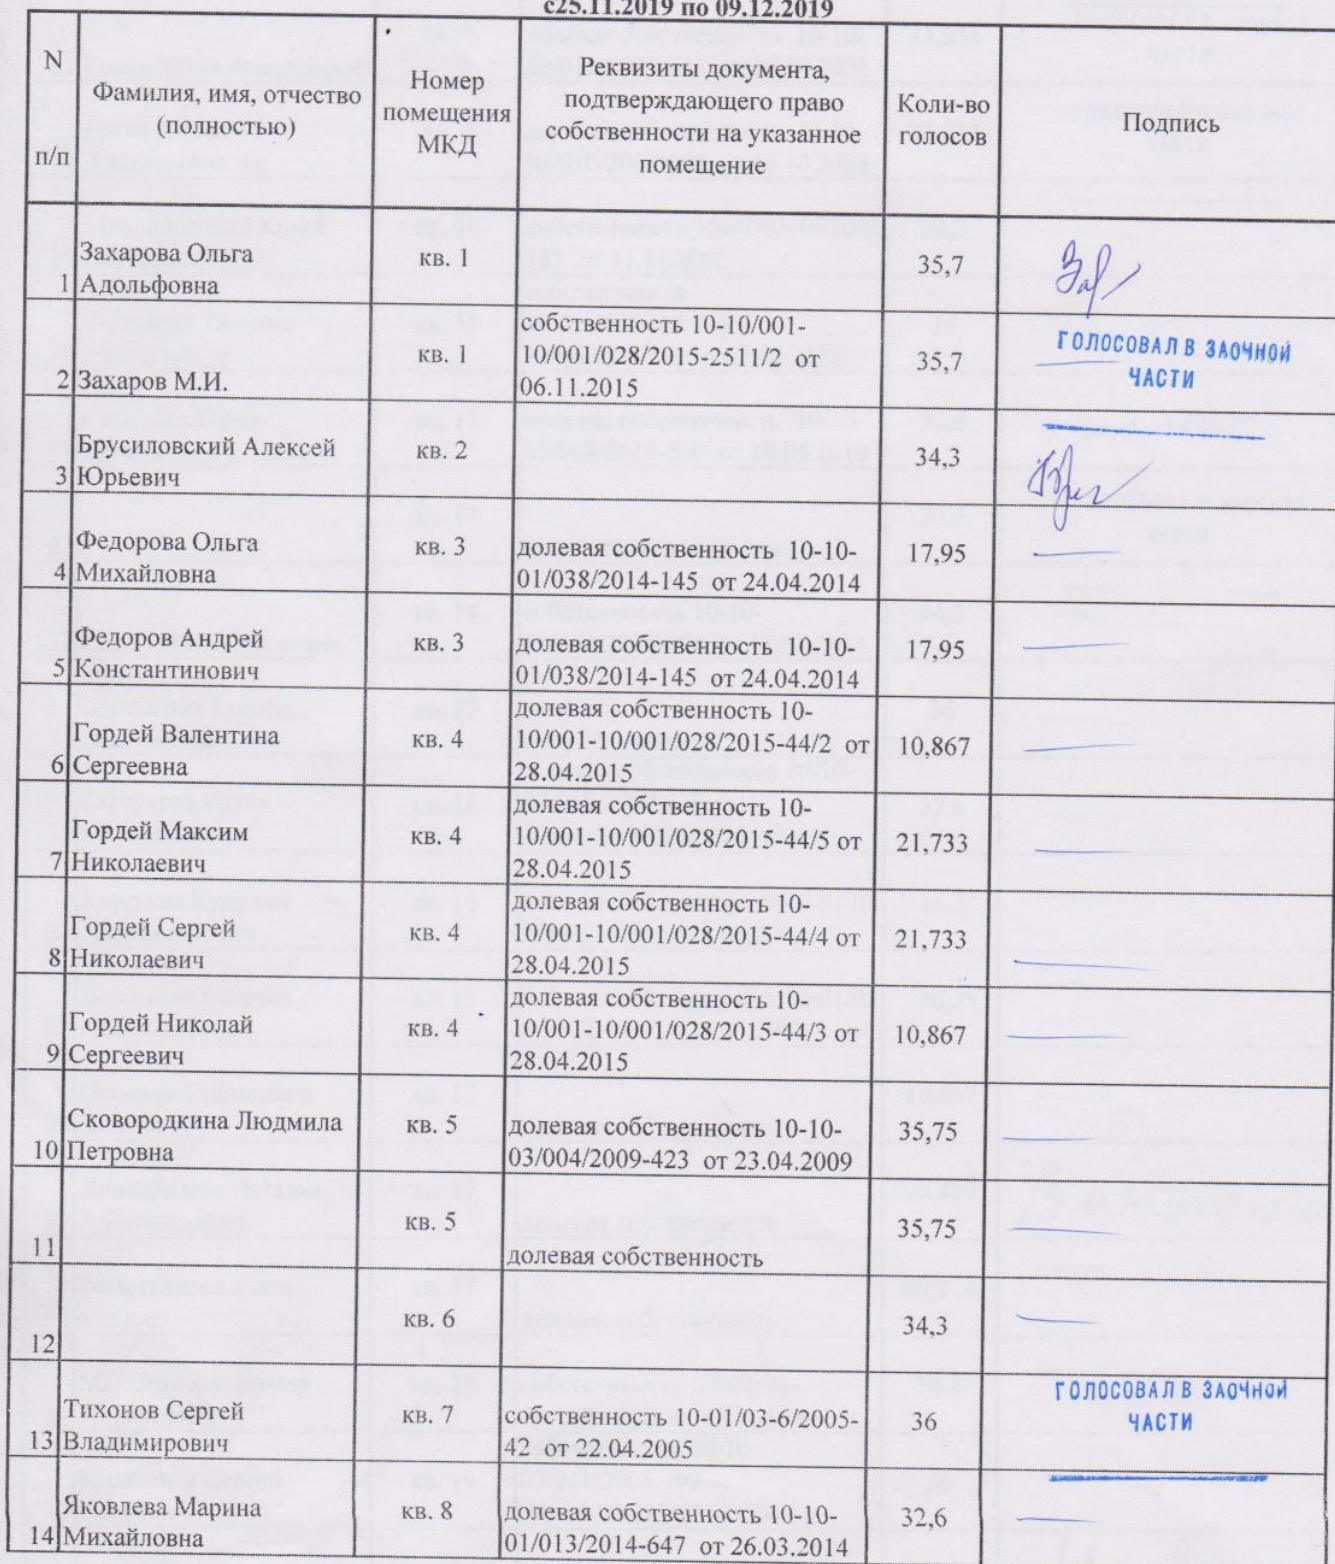 с25.11.2019 по 09.12.2019
N
п/п
Фамилия, имя, отчество
(полностью)
Номер
помещения
МКД
Реквизиты документа,
подтверждающего право
собственности на указанное
помещение
Коли-во
голосов
Подпись
1
Захарова Ольга
Адольфовна
кв. 1
35,7
2
Захаров М.И.
кв. 1
собственность 10-10/001-
10/001/028/2015-2511/2 от
06.11.2015
35,7
ГОЛОСОВАЛ В ЗАОЧНОЙ
ЧАСТИ
3
Брусиловский Алексей
Юрьевич
кв. 2
34,3
4
Федорова Ольга
Михайловна
кв. 3
долевая собственность 10-10-
01/038/2014-145 от 24.04.2014
17,95
5
Федоров Андрей
Константинович
кв. 3
долевая собственность 10-10-
01/038/2014-145 от 24.04.2014
17,95
6
Гордей Валентина
Сергеевна
кв. 4
долевая собственность 10-
10/001-10/001/028/2015-44/2 от
28.04.2015
10,867
7
Гордей Максим
Николаевич
кв. 4
долевая собственность 10-
10/001-10/001/028/2015-44/5 от
28.04.2015
21,733
8
Гордей Сергей
Николаевич
кв. 4
долевая собственность 10-
10/001-10/001/028/2015-44/4 от
28.04.2015
21,733
9
Гордей Николай
Сергеевич
кв. 4
долевая собственность 10-
10/001-10/001/028/2015-44/3 от
28.04.2015
10,867
10
Сковородкина Людмила
Петровна
кв. 5
долевая собственность 10-10-
03/004/2009-423 от 23.04.2009
35,75
11
кв. 5
долевая собственность
35,75
12
кв. 6
34,3
13
Тихонов Сергей
Владимирович
кв. 7
собственность 10-01/03-6/2005-
42 от 22.04.2005
36
ГОЛОСОВАЛ В ЗАОЧНОЙ
ЧАСТИ
14
Яковлева Марина
Михайловна
кв. 8
долевая собственность 10-10-
01/013/2014-647 от 26.03.2014
32,6